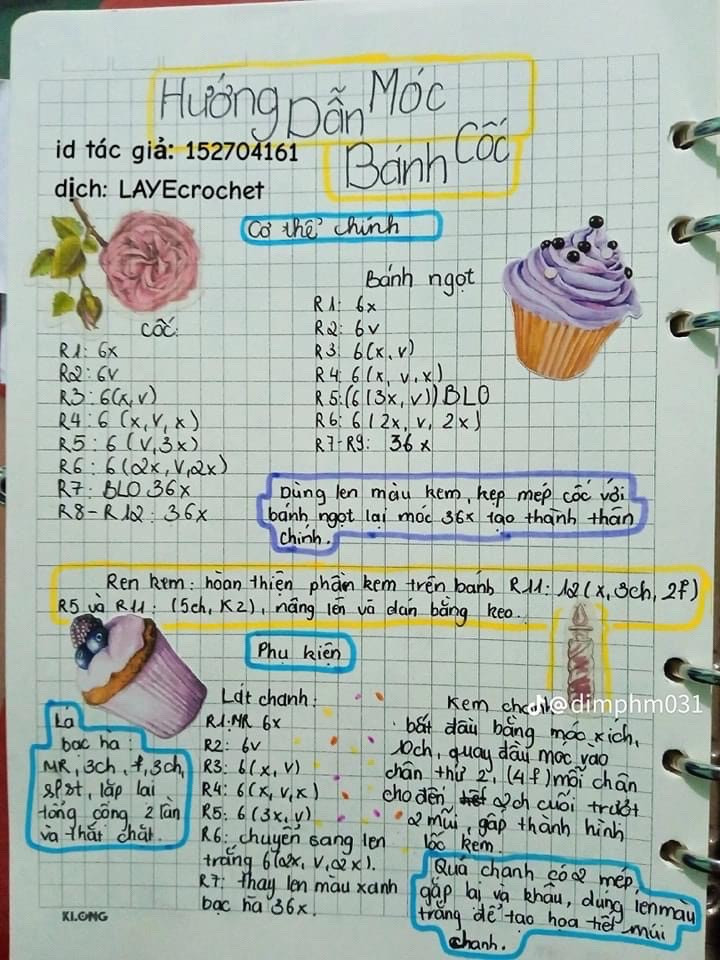 Hướng Dẫn Móc
Bánh Cốc
id tác giả: 152704161
dịch: LAYEcrochet
Cơ thể chính
Cốc:
R1: 6x
R2: 6v
R3: 6(x, v)
R4: 6 (x, v, x)
R5: 6 (v, 3x)
R6: 6(2x, v, 2x)
R7: BLO 36x
R8-R12: 36x
Bánh ngọt
R1: 6x
R2: 6v
R3: 6(x, v)
R4: 6(x, v, x)
R5:(6(3x, v)) BLO
R6: 6(2x, v, 2x)
R7-R9: 36x
Dùng len màu kem, kẹp mép cốc với
bánh ngọt lại móc 36x tạo thành thân
chính.
Ren kem: hoàn thiện phần kem trên bánh R11: 12(x, 3ch, 2f)
R5 và R11: (5ch, k2), nâng lên và dán bằng keo.
Phụ kiện
Lá
bạc hà:
MR, 3ch, f, 3ch,
slst, lặp lại
tổng cộng 2 lần
và thắt chặt.
Lát chanh:
R1: MR 6x
R2: 6v
R3: 6(x, v)
R4: 6(x, v, x)
R5: 6(3x, v)
R6: chuyển sang len
trắng 6(2x, v, 2x).
R7: thay len màu xanh
bạc hà 36x.
Kem
@dimphm031
bắt đầu bằng móc xích,
10ch, quay đầu móc vào
chân thứ 2, (4f) mỗi chân
cho đến 2ch cuối trượt
2 mũi, gấp thành hình
lốc kem.
Quả chanh có 2 mép,
gấp lại và khâu, dùng len màu
trắng để tạo họa tiết múi
chanh.
KLONG